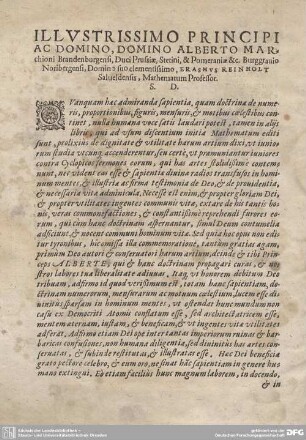 ILLVSTRISSIMO PRINCIPI
AC DOMINO, DOMINO ALBERTO MAR=
chioni Brandenburgensi, Duci Prussiæ, Stetini, & Pomeraniæ &c. Burggrauio
Noribergensi, Domino suo clementissimo, ERASMVS REINHOLT
Salueldensis, Mathematum Professor.
S. D.
Vanquam hæc admiranda sapientia, quam doctrina de nume=
ris, proportionibus, figuris, mensuris, & motibus cœlestibus con=
tinet, nulla humana voce satis laudari potest, tamen in abst
libris, qui ad vsum discentium initia Mathematum editi
sunt, prolixius de dignitate & vtilitate harum artium dixi, vt iunio=
rum studia accenderentur, seu certè, vt præmunirentur iuniores
contra Cyclopicos sermones eorum, qui has artes stolidissimè contem=
nunt, nec vident eas esse & sapientiæ diuinæ radios transfusos in homi=
num mentes, & illustria ac firma testimonia de Deo, & de prouidentia,
& necessaria vitæ adminicula. Necesse est enim, & propter gloriam Dei,
& propter vtilitates ingentes communis vitæ, extare de his tantis bo=
nis, veras commonefactiones, & constantissimè reprehendi furores eo=
rum, qui cum hanc doctrinam aspernantur, simul Deum contumelia
afficiunt, & nocent communi hominum vitæ. Sed quia hæc non
tyronibus, hic omissa illa commemoratione, tantùm gratias agam,
primùm Deo autori & conseruatori harum artium, deinde & tibi Prin=
ceps ALBERTE, qui & hanc doctrinam propagari curas, & no=
stros labores tua liberalitate adiuuas. Itaq; vt honorem debitum Deo
tribuam, adfirmo id quod verissimum est, totam hanc sapientiam,
doctrinam numerorum, mensurarum ac motuum cœlestium, lucem esse di=
uinitùs sparsam in hominum mentes, vt ostendat hunc mundum non
casu ex Democriti Atomis constatum esse, sed architectricem esse,
mentem æternam, iustam, & beneficam, & vt ingentes vitæ vtilitates
adferat. Adfirmo etiam Dei ope inter tantas imperiorum ruinas & bar=
baricas confusiones, non humana diligentia, sed diuinitùs has artes con=
seruatas, & subinde restitutas, & illustratas esse. Hæc Dei beneficia
grato pectore celebro, & eum oro, ne sinat hãc sapientiam in genere hu=
mano extingui. Et etiam facilius hunc magnum laborem, in docendo,
& in